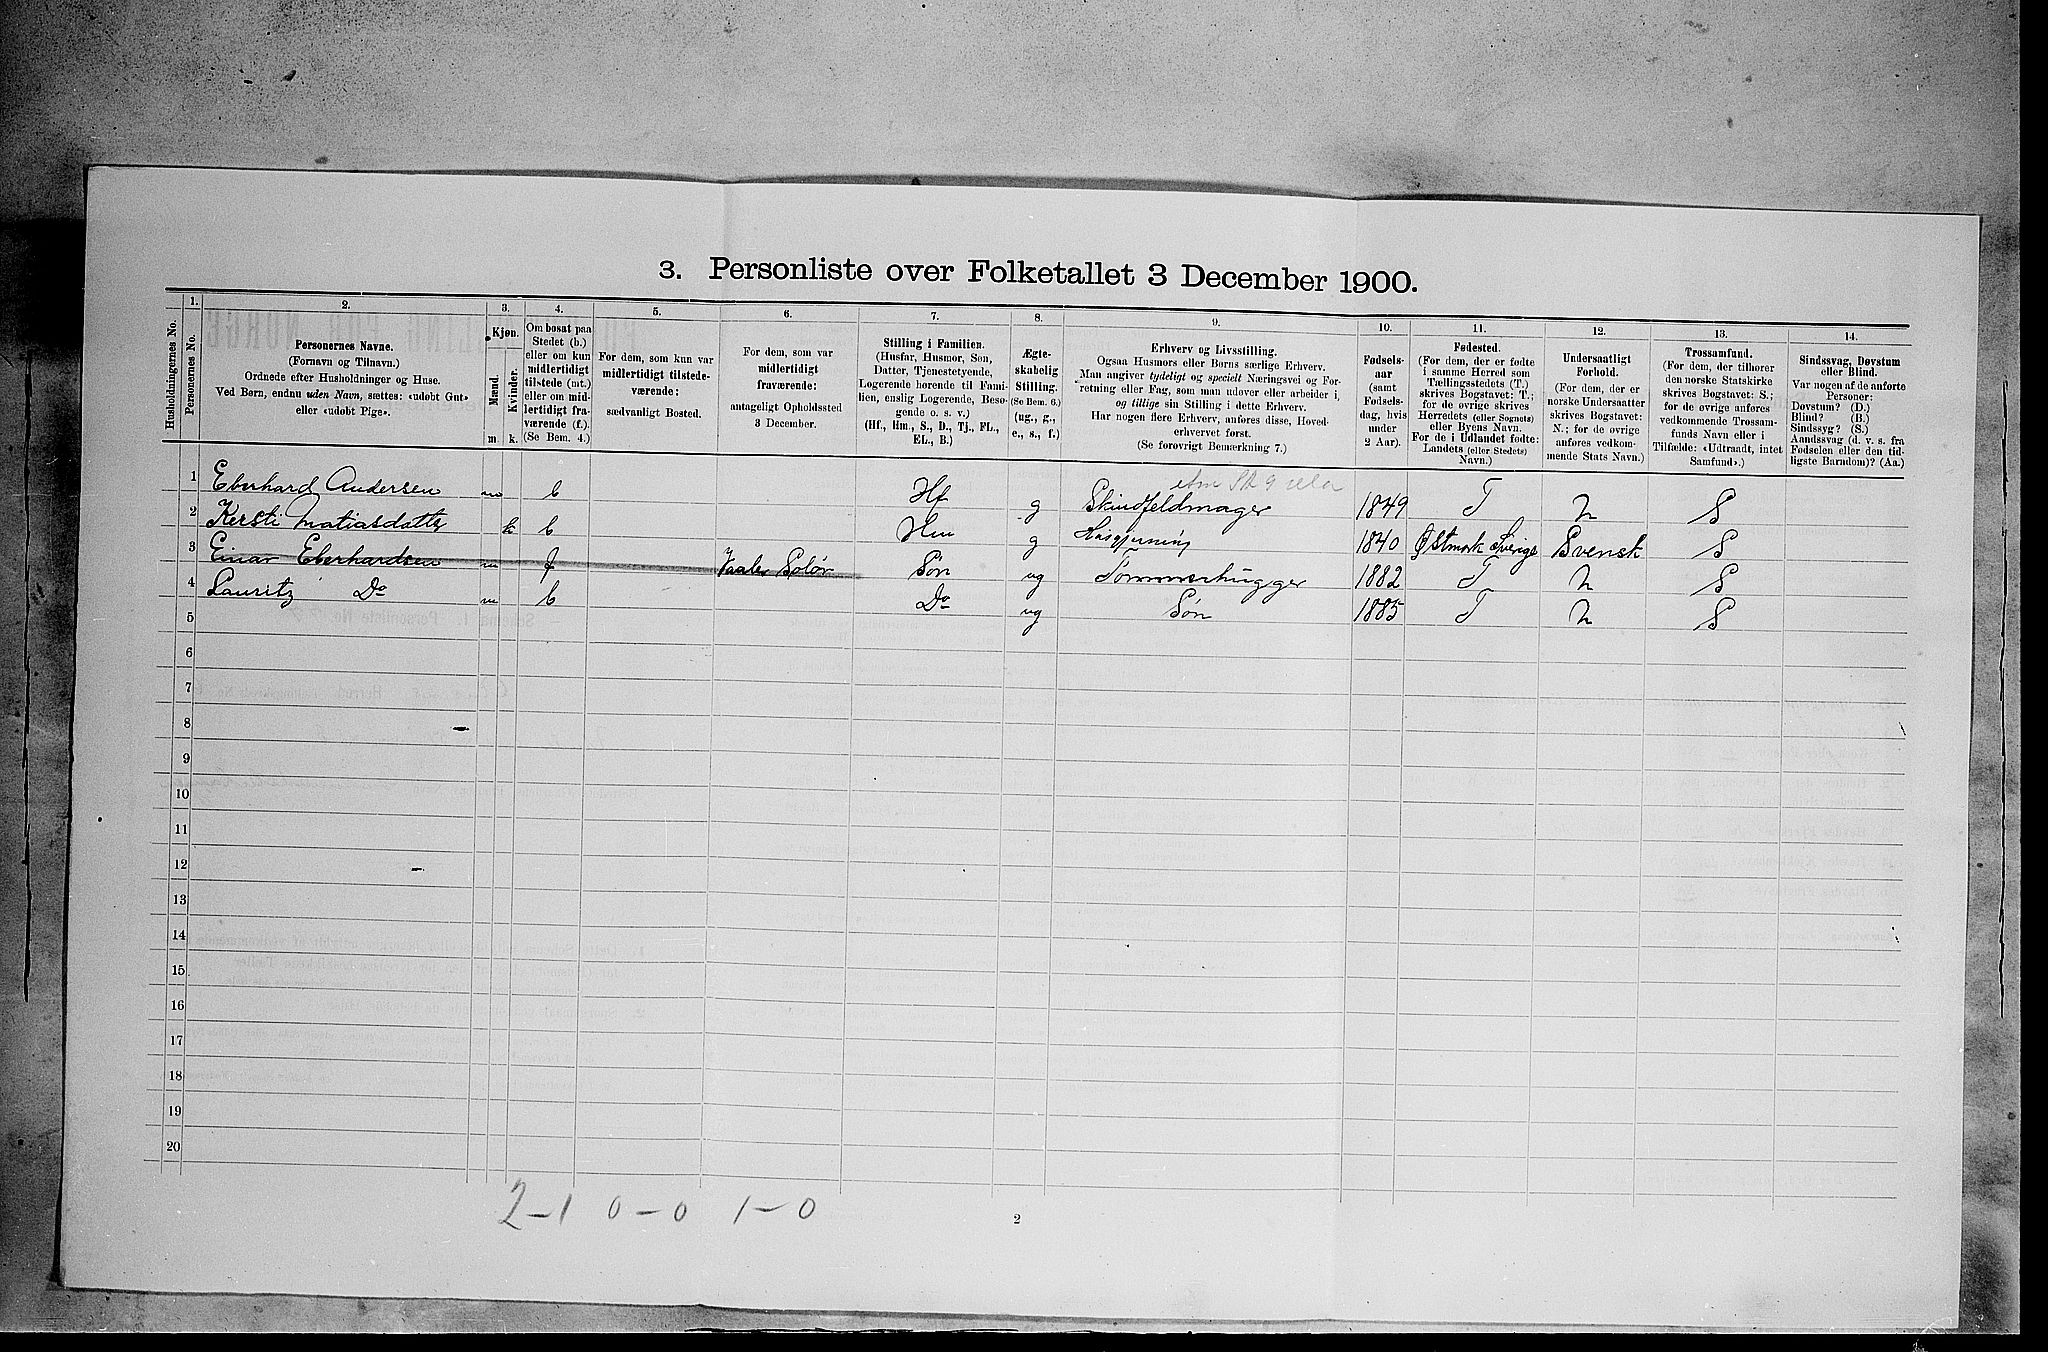 3. Personliste over Folketallet 3 December 1900.
1. 2. 3. 4. 5. 6. 7. 8. 9. 10. 11. 12. 13. 14.
Husholdningernes No.
Personernes No.
Personernes Navne.
(Fornavn og Tilnavn.)
Ordnede efter Husholdninger og Huse.
Ved Børn, endnu uden Navn, sættes: «udøbt Gut»
eller «udøbt Pige».
Kjøn.
Mænd.
Kvinder.
m. k.
Om bosat paa
Stedet (b.)
eller om kun
midlertidigt
tilstede (mt.)
eller om mid-
lertidigt fra-
værende (f.).
(Se Bem. 4.)
For dem, som kun var
midlertidigt tilstede-
værende:
sædvanligt Bosted.
For dem, som var
midlertidigt
fraværende:
antageligt Opholdssted
3 December.
Stilling i Familien.
(Husfar, Husmor, Søn,
Datter, Tjenestetyende,
Logerende hørende til Fami-
lien, enslig Logerende, Besø-
gende o. s. v.)
(Hf., Hm., S., D., Tj., FL.,
EL., B.)
Ægte-
skabelig
Stilling.
(Se Bem. 6.)
(ug., g.,
e., s., f.)
Erhverv og Livsstilling.
Ogsaa Husmors eller Børns særlige Erhverv.
Man angiver tydeligt og specielt Næringsvei og For-
retning eller Fag, som man udøver eller arbeider i,
og tillige sin Stilling i dette Erhverv.
Har nogen flere Erhverv, anføres disse, Hoved-
erhvervet først.
(Se forøvrigt Bemærkning 7.)
Fødsels-
aar
(samt
Fødsels-
dag, hvis
under
2 Aar).
Fødested.
(For dem, der er fødte
i samme Herred som
Tællingsstedets (T.)
skrives Bogstavet: T.;
for de øvrige skrives
Herredets (eller Sognets)
eller Byens Navn.
For de i Udlandet fødte:
Landets (eller Stedets)
Navn.)
Undersaatligt
Forhold.
(For dem, der er
norske Undersaatter
skrives Bogstavet:
N.; for de øvrige
anføres vedkom-
mende Stats Navn.)
Trossamfund.
(For dem, der tilhører
den norske Statskirke
skrives Bogstavet: S.;
for de øvrige anføres
vedkommende Trossam-
funds Navn eller i
Tilfælde: «Udtraadt, intet
Samfund».)
Sindssvag, Døvstum
eller Blind.
Var nogen af de anførte
Personer:
Døvstum? (D.)
Blind? (B.)
Sindssyg? (S.)
Aandssvag (d. v. s. fra
Fødselen eller den tid-
ligste Barndom)? (Aa.)
1 Eberhard Andersen m b Hf g Skindfeldmager 1849 T N S
2 Kersti Matiasdatter k b Hm g Husgjerning 1840 Østmark Sverige Svensk S
3 Einar Eberhardsen m f Vaaler Solør Søn ug Tømmerhugger 1882 T N S
4 Lauritz Do m b Do ug Søn 1885 T N S
5
6
7
8
9
10
11
12
13
14
15
16
17
18
19
20
2-1 0-0 1-0
2